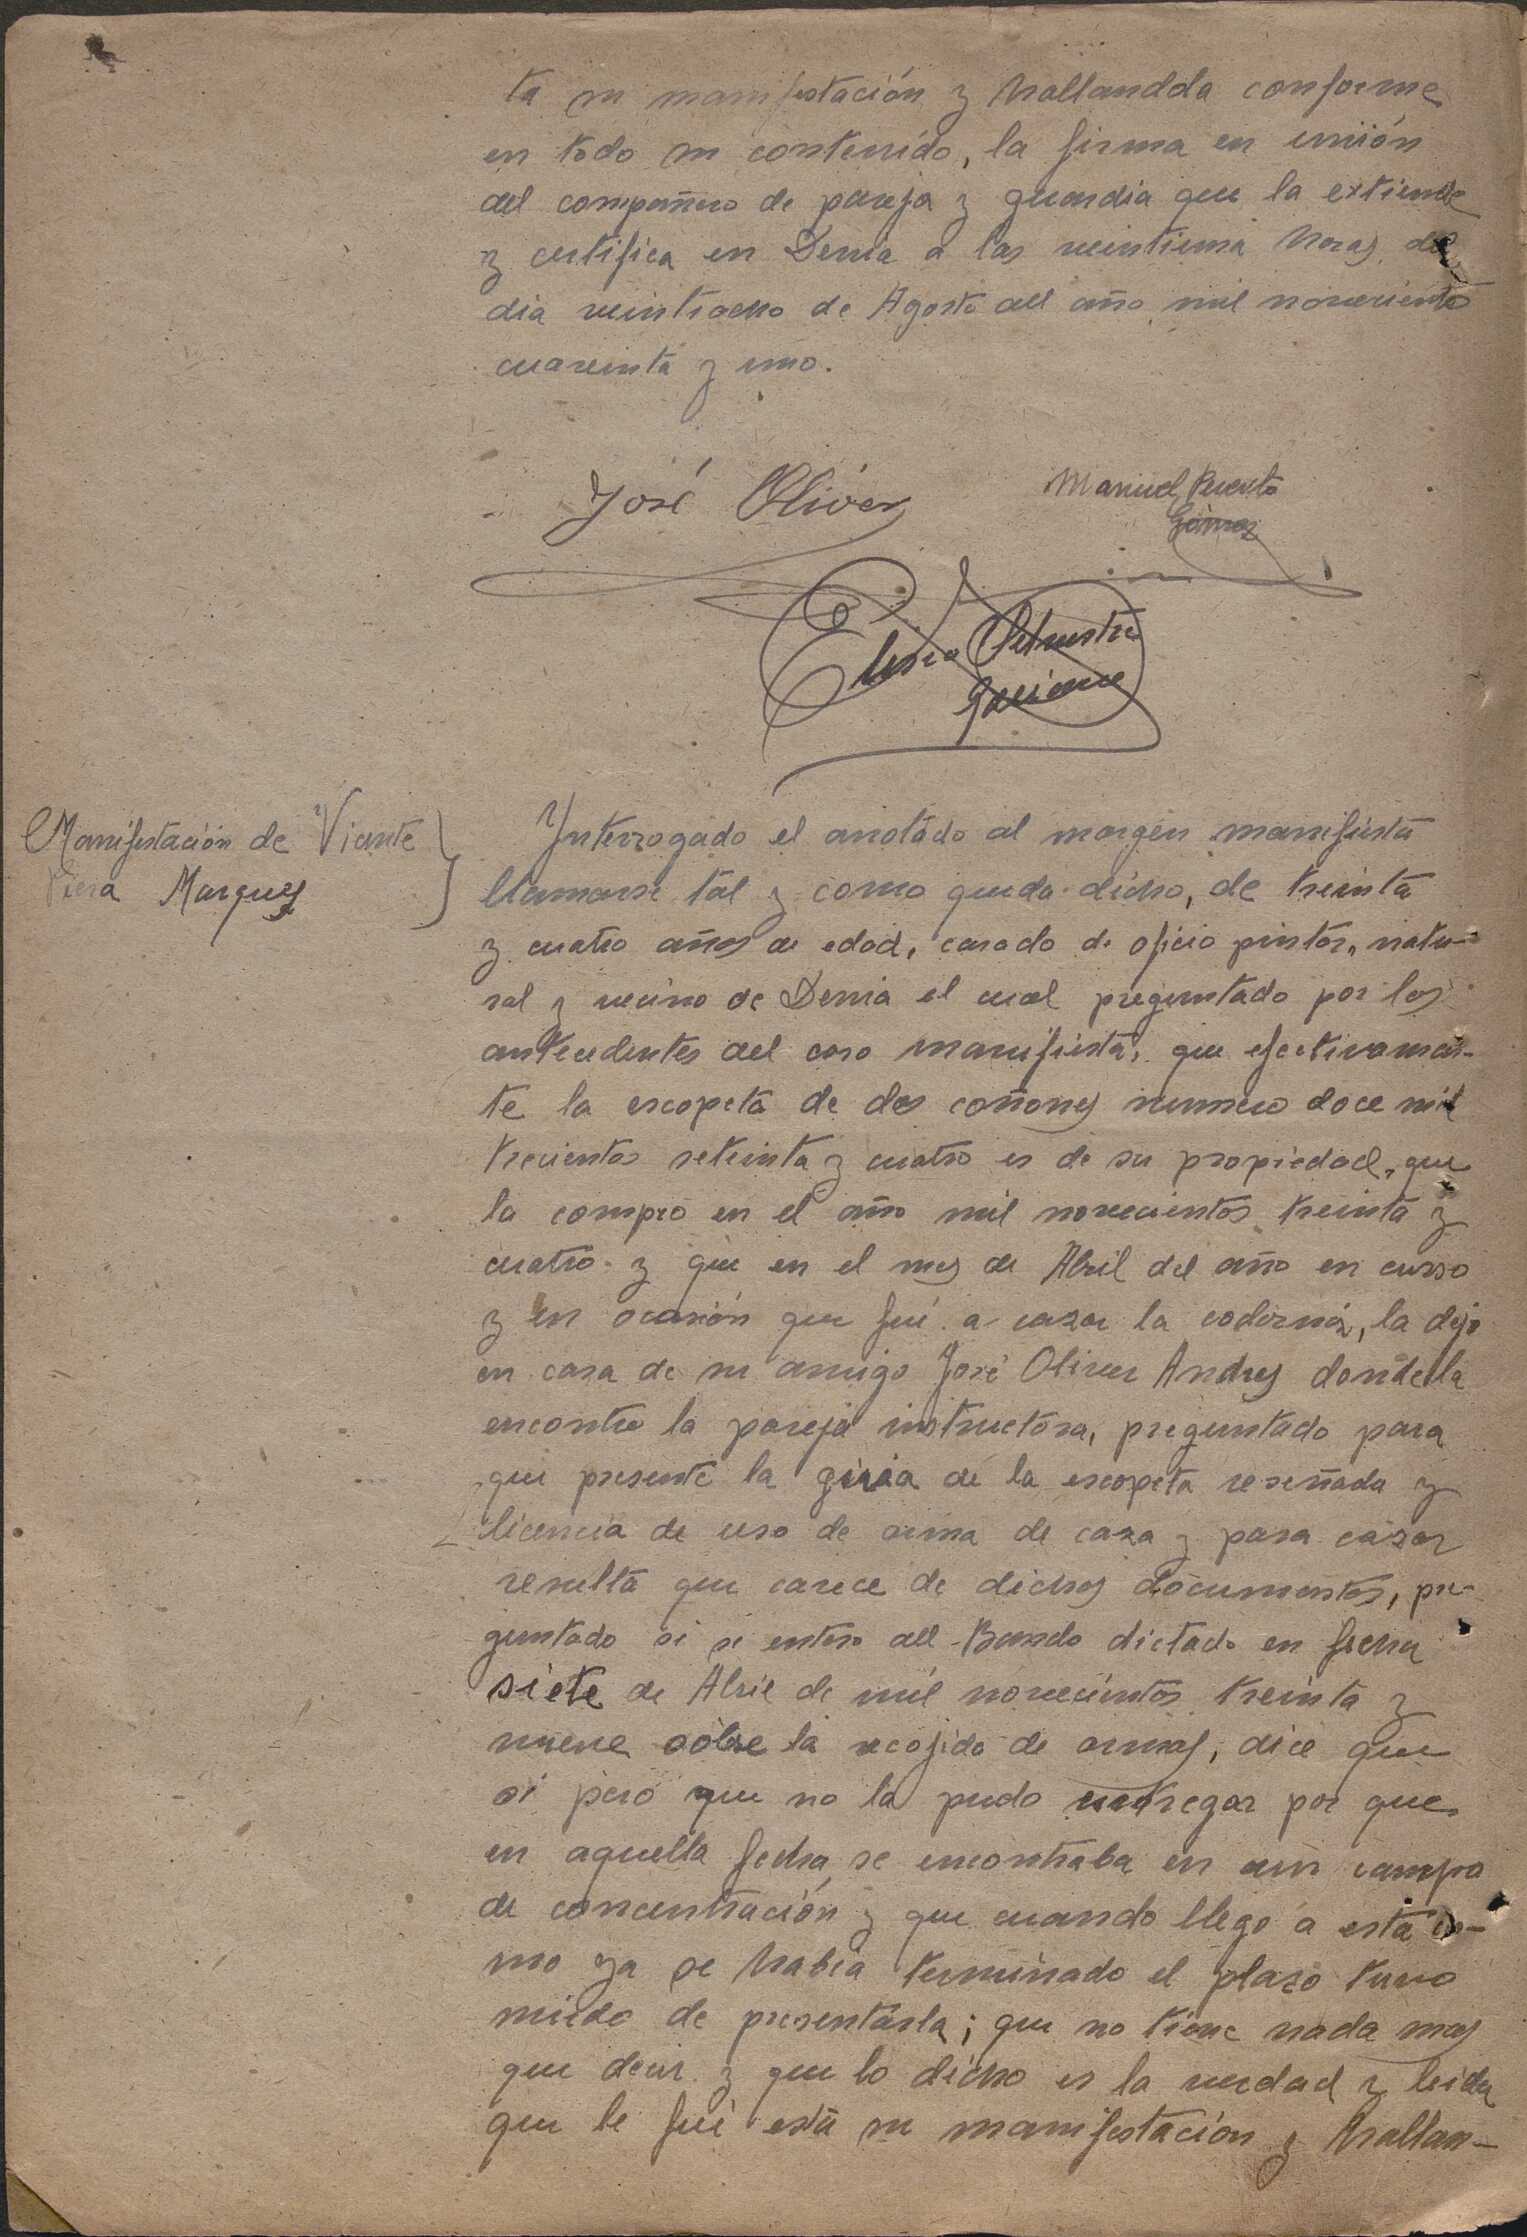 ta su manifestación y hallandola conforme
en todo su contenido, la firma en unión
del compañero de pareja y guardia que la extiende
y certifica en Denia a las veintiuna horas del
dia veintiocho de Agosto del año mil novecientos
cuareinta y uno.
José Oliver
Manuel Puerto
Gómez
Manifestación de Vicente
Piera Marques
Interrogado el anotado al margen manifiesta
llamarse tal y como queda dicho, de treinta
y cuatro años de edad, casado de oficio pintor, natu-
ral y vecino de Denia el cual preguntado por los
antecedentes del caso manifiesta, que efectivamen-
te la escopeta de dos cañones numero doce mil
trecientos seteinta y cuatro es de su propiedad, que
la compro en el año mil novecientos treinta y
cuatro y que en el mes de Abril del año en curso
y en ocasión que fué a cazar la codorniz, la dejo
en casa de su amigo José Oliver Andres donde la
encontro la pareja instructora, preguntado para
que presente la guia de la escopeta reseñada y
licencia de uso de arma de caza y para cazar
resulta que carece de dichos documentos, pre-
guntado si se entero del Bando dictado en fecha
siete de Abril de mil novecientos treinta y
nueve sobre la recojida de armas, dice que
si pero que no la pudo entregar por que
en aquella fecha se encontraba en un campo
de concentración y que cuando llego a esta co-
mo ya se habia terminado el plazo tuvo
miedo de presentarla; que no tiene nada mas
que decir y que lo dicho es la verdad y leida
que le fué esta su manifestación y hallan-